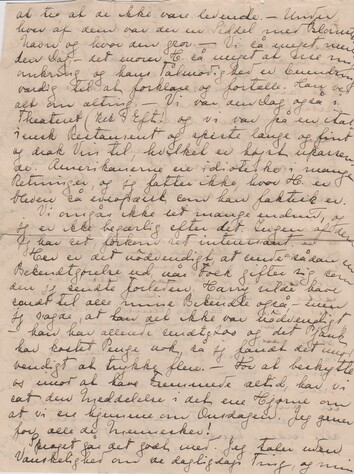 at tro at de ikke var levende. – Under
hver af dem var der en Seddel med Blomstens
Navn og hvor den gror. – Vi så meget, men
den Dag – det morer H. så meget at vise mig
omkring og hans Tålmodighed er beundrings
værdig til at forklare og fortælle. Han ved
alt om alting. – Vi var den Dag også i
Theatret (Kl. 2 Eft.) og vi var på en ital
iensk Restaurant og spiste længe og fint
og drak Vin til, hvilket er højst uparan
de. Amerikanerne er idiotiske i mange
Retninger, og jeg fatter ikke, hvor H. er
bleven så europæisk som han faktisk er.
Vi omgås ikke ret mange endnu, og
jeg er ikke begærlig efter det. Ingen af dem
jeg har set, forekom ret interessant
Her er det nødvendigt at sende sådan en
Bekendtgørelse ud, når Folk gifter sig som
den jeg sendte forleden. Harry vilde have
sendt til alle mine Bekendte også – men
jeg sagde, at det ikke var nødvendigt
– han har allerede sendt og det
har kostet Penge nok, så jeg fandt det unød
vendigt at trykke flere. – For at beskytte
os imod at have Fremmede altid, har vi
sat den Meddelelse i det ene Hjørne om
at vi er hjemme om Onsdagen. Jeg
for alle de Mennesker!
Sproget går det godt med. Jeg taler uden
Vanskelighed om de dagligdags Ting, og